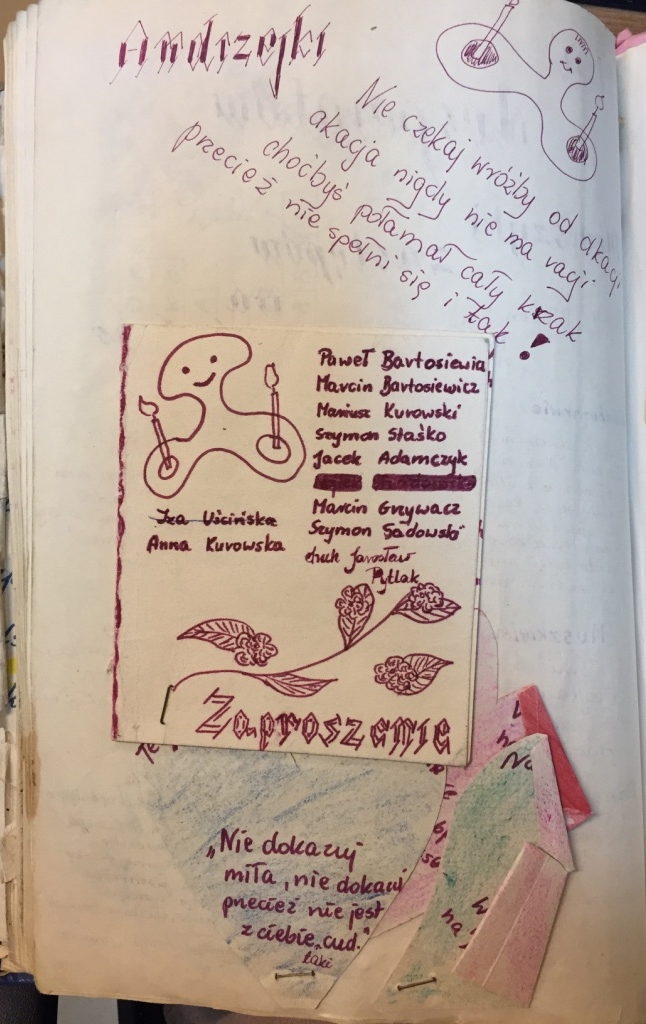 Andrzejki
Nie czekaj wróżby od akacji
akacja nigdy nie ma racji
choćbyś połamał cały krzak
przecież nie spełni się i tak!
Paweł Bartosiewicz
Marcin Bartosiewicz
Mariusz Kurowski
Szymon Staśko
Jacek Adamczyk
Marcin Grzywacz
Szymon Sadowski
druh Jarosław
Pytlak
Iza Uścińska
Anna Kurowska
Zaproszenie
„Nie dokazuj
miła, nie dokazuj
przecież nie jest
z ciebie „cud."
taki
Na